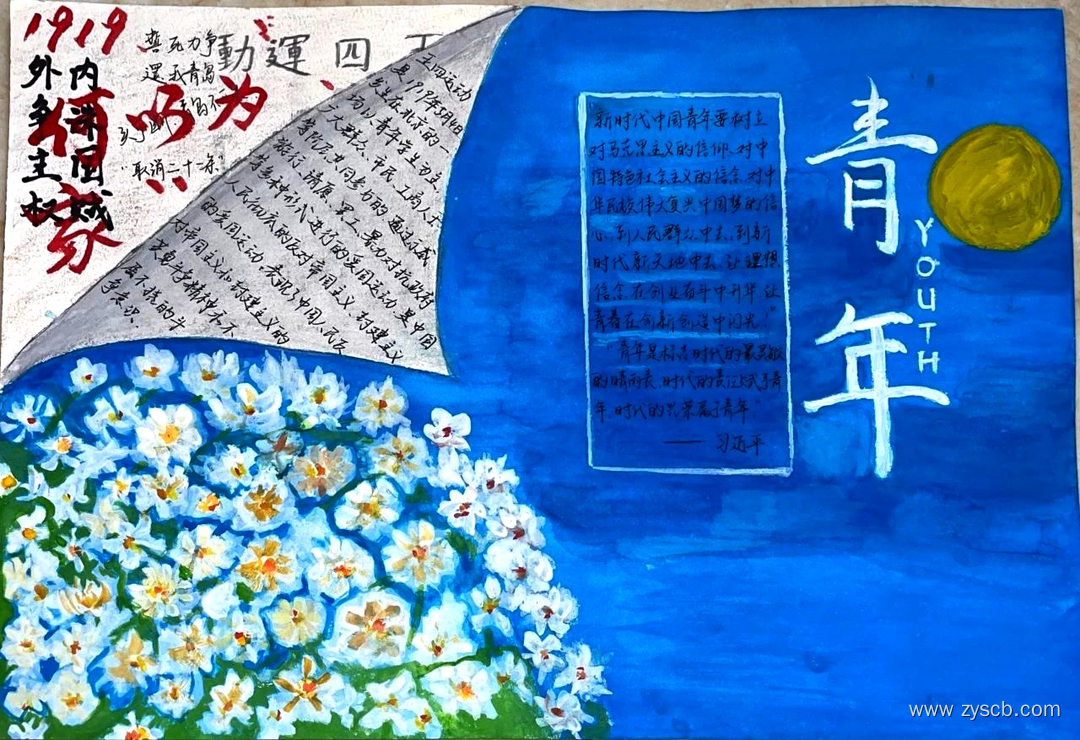 1919
外争主权
内诛国贼
何以为家
誓死力争
還我青島
"取消二十一条"
動運四五
五四运动
是1919年5月4日
发生在北京的一
场以青年学生为主
广大群众、市民、工商人士
等阶层共同参与的，通过示威
游行、请愿、罢工、暴力对抗政府
等多种形式进行的爱国运动，是中国
人民彻底的反对帝国主义、封建主义
的爱国运动，表现了中国人民反
对帝国主义和封建主义的
英勇斗争精神和不
屈不挠的斗
争意识.
"新时代中国青年要树立
对马克思主义的信仰、对中
国特色社会主义的信念、对中
华民族伟大复兴中国梦的信
心，到人民群众中去，到新
时代新天地中去，让理想
信念在创业奋斗中升华，让
青春在创新创造中闪光！"
"青年是标志时代的最灵敏
的晴雨表，时代的责任赋予青
年，时代的光荣属于青年"
—— 习近平
青年
YOUTH
www zyscb.com